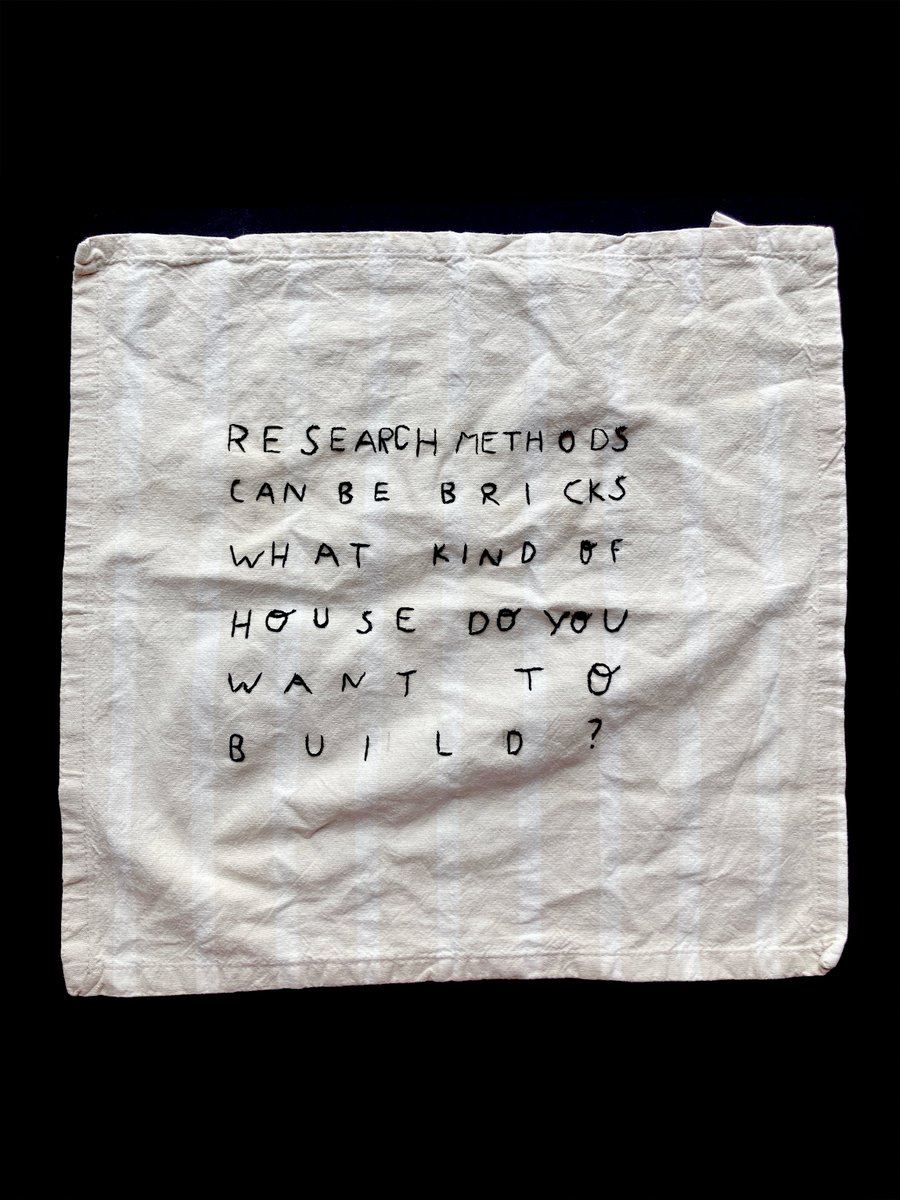 RESEARCH METHODS
CAN BE BRICKS
WHAT KIND OF
HOUSE DO YOU
WANT TO
BUILD?